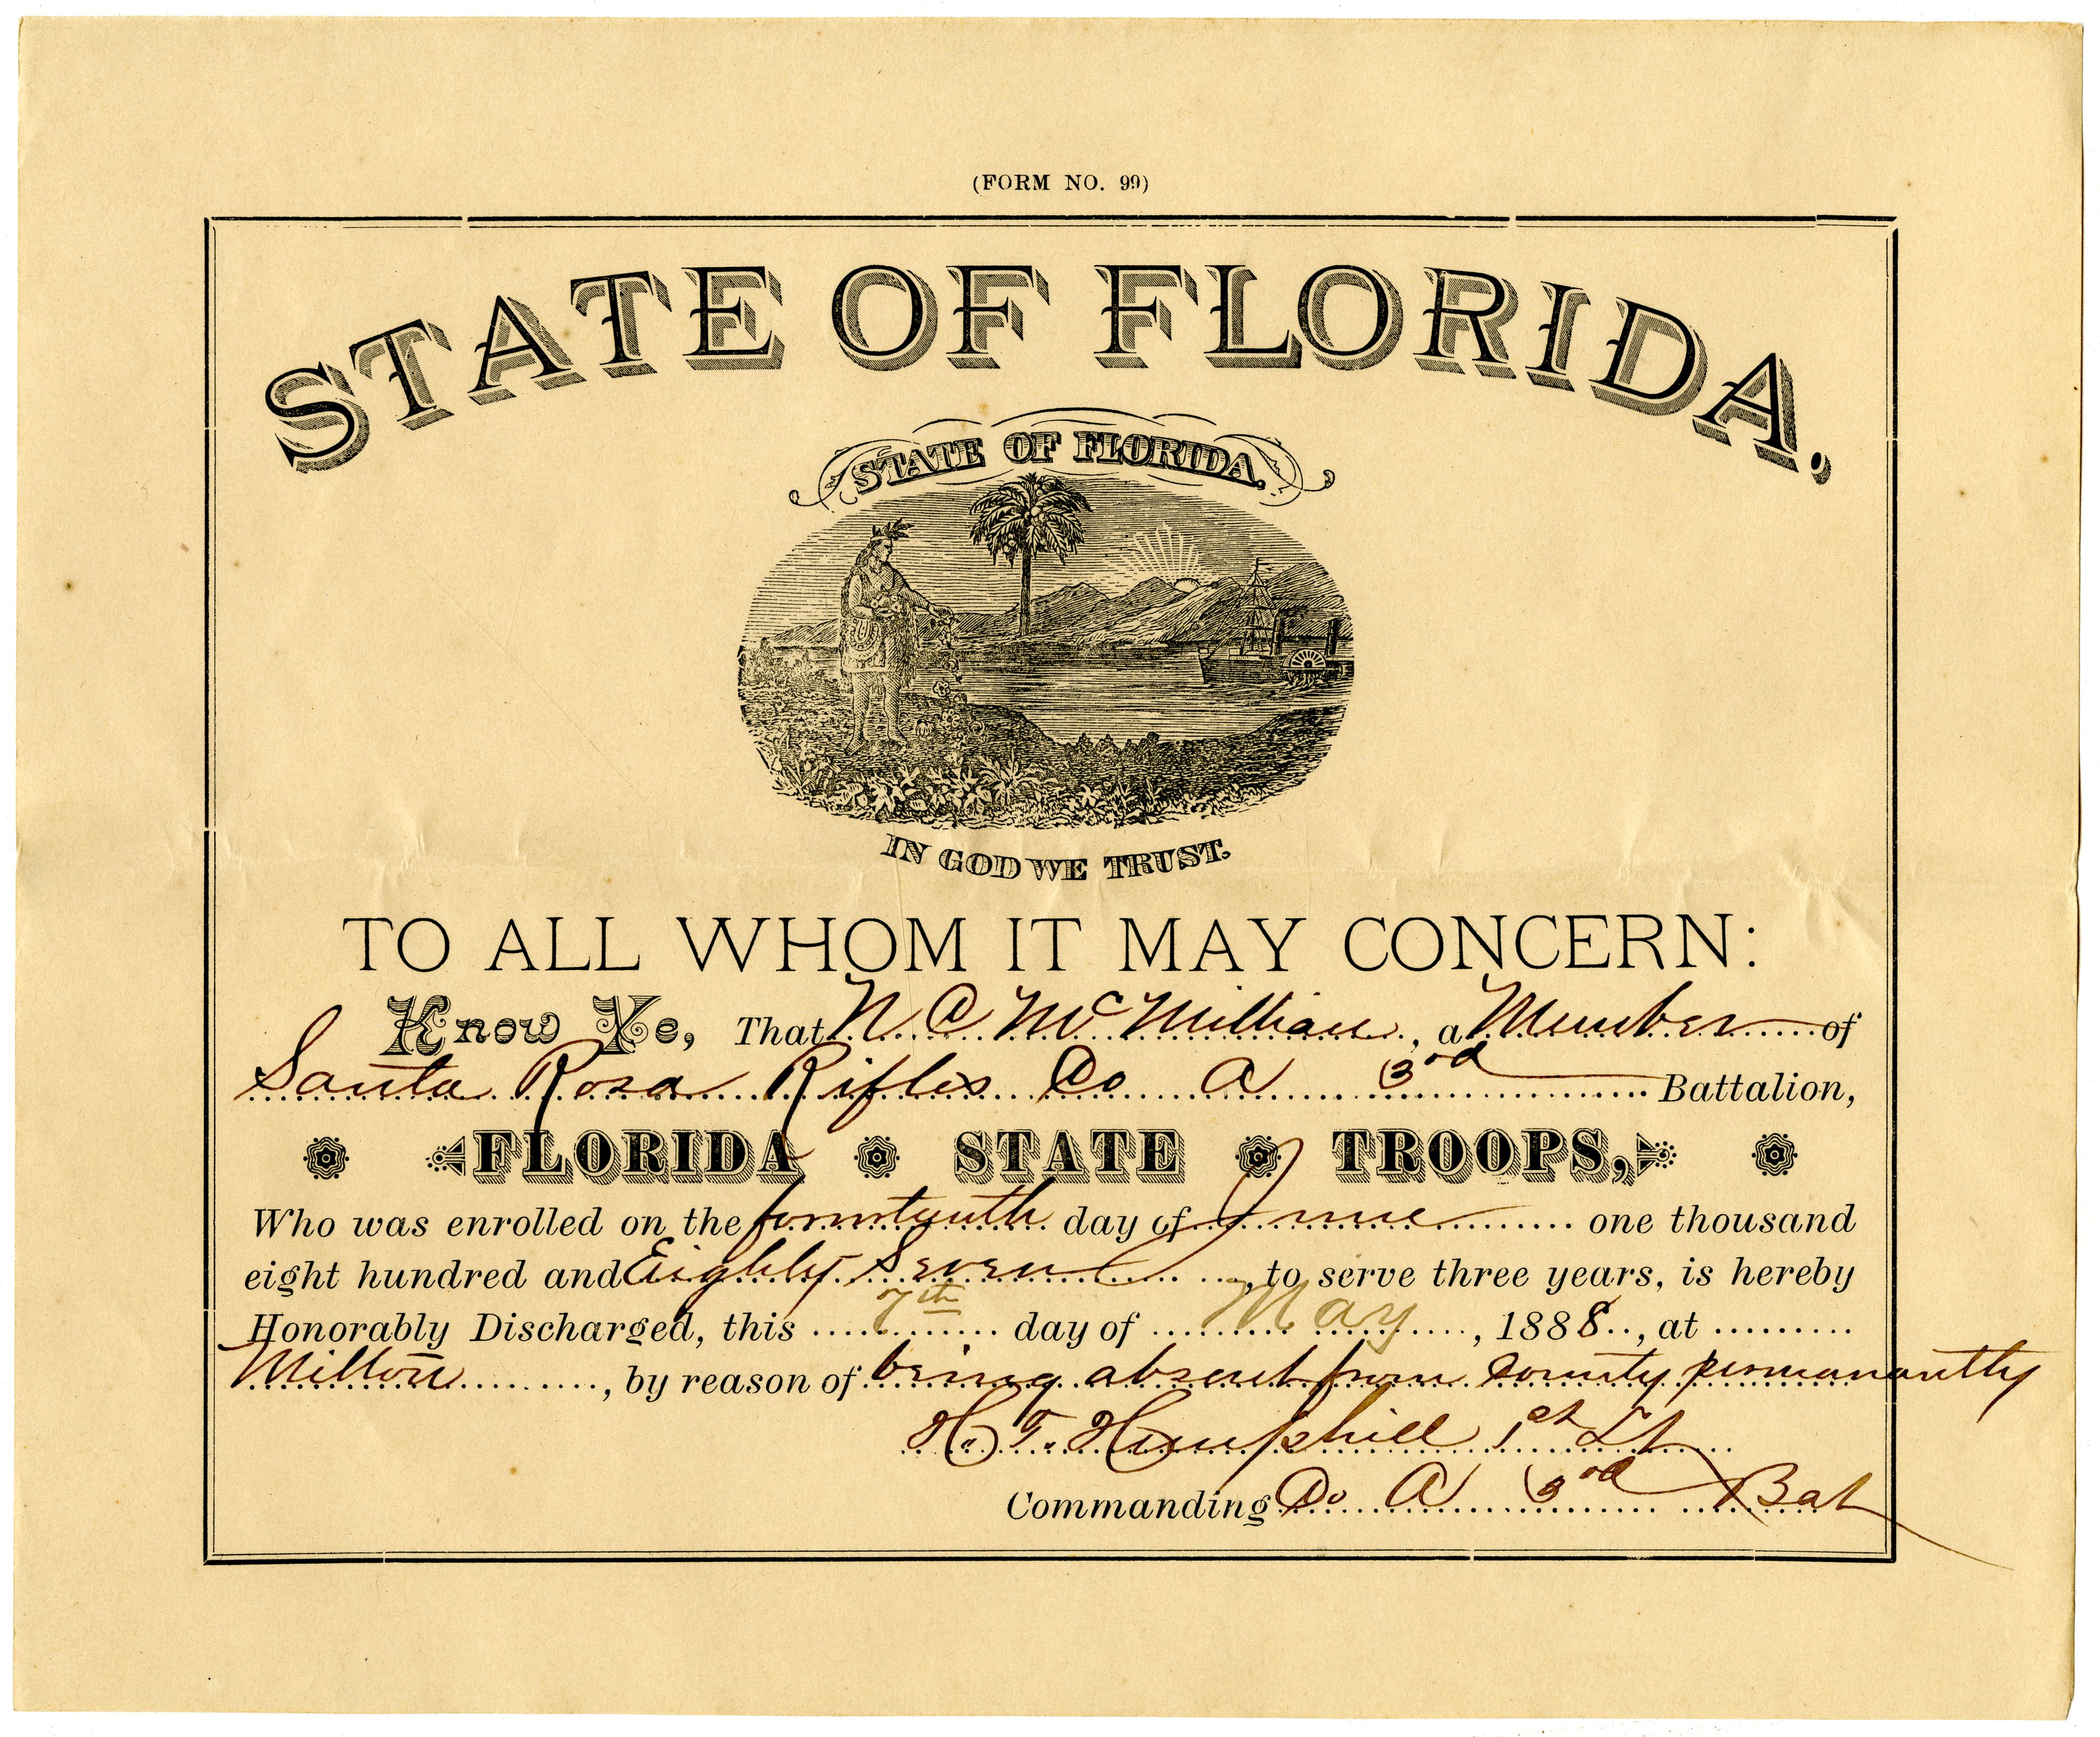 (FORM NO. 99)
STATE OF FLORIDA,
STATE OF FLORIDA.
IN GOD WE TRUST.
TO ALL WHOM IT MAY CONCERN:
Know Ye, That N. C. McMillian, a Member of
Santa Rosa Rifles Co A 3rd Battalion,
FLORIDA STATE TROOPS,
Who was enrolled on the fourteenth day of June one thousand
eight hundred and Eighty Seven, to serve three years, is hereby
Honorably Discharged, this 7th day of May, 1888, at
Milton, by reason of being absent from County permanantly
H. T. Humphill 1st Lt
Commanding Co A 3rd Bat